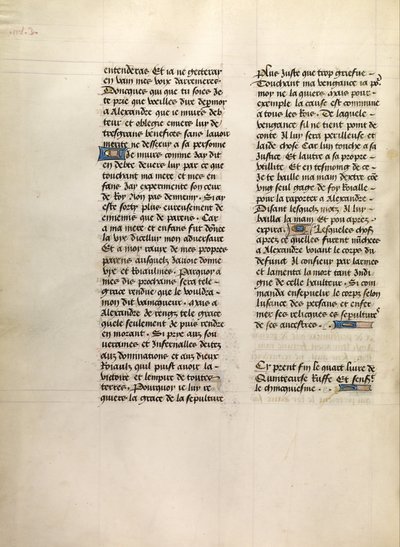 entenderas Et ia ne getteray
en vain mes voix darrenieres
Doncques qui que tu soies Je
te prie que veilles dire depmoy
a Alexandre que ie muire deb
teur et obligie enuers luy de
tresgrans benefices sans lauoir
merite ne desseruy a sa personne
Je muire comme iay dit
en debte deuers luy par ce que
touchant ma mere et mes en
fans Jay experimente son cueur
de Roy Non pas dennemy Si ay
este forty plus eureusement de
ennemis que de parens Car
a ma mere et enfans fut donee
la vye dicelluy mon aduersaire
Et a moy toute de mes propres
parens ausquelz Jauoie donne
vye et Roiaulmes Parquoy a
mes diz prochains sera tele
grace rendue que le vouldra
mon dit vaincqueur Mais a
Alexandre de rengz tele grace
quele seulement Je puis rendre
en morant Si prie aux sou
ueraines et Infernalles deitez
aux dominations et aux dieux
Roiaulz quil puist auoir la
victoire et lempire de toutes
terres Pourquoy ie luy re
quiere la grace de la sepulture
Plus Juste que trop griefue
Touchant ma vengance ia po
moy ne la quiere Mais pour
exemple la cause est commune
a tous les Rois De laquele
vengance sil ne tient point de
conte Il luy sera perilleuse et
laide chose Car lun touche a sa
Justice Et lautre a sa propre
vtilite Et en tesmoing de ce
Je te baille ma main dextre cõe
vng seul gage de foy Roialle
pour la raporter a Alexandre
Disant lesquelz motz Il luy
bailla la main Et pou apres
expira Lesqueles choses
apres ce quelles furent nũchees
a Alexandre voiant le corps du
defunct Il confieur par larmes
et lamenta la mort tant Indi
gne de celle haulteur Si com
manda enseuelir le corps selon
lusance des persans et enfer
mer ses reliques es sepultures
de ses ancestres
Cy prent fin le quart liure de
Quintecurse Ruffe Et sensuit
le chincquiesme